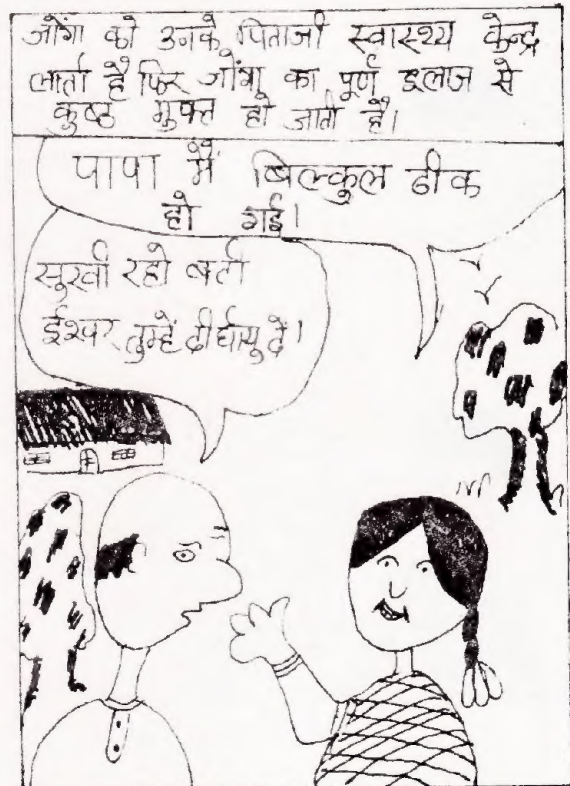 जोंगा को उनके पिताजी स्वास्थ्य केन्द्र
लाता है फिर जोंगा का पूर्ण इलाज से
कुष्ठ मुक्त हो जाती है।
पापा मैं बिल्कुल ठीक
हो गई।
सुखी रहो बेटी
ईश्वर तुम्हें दीर्घायु दें।